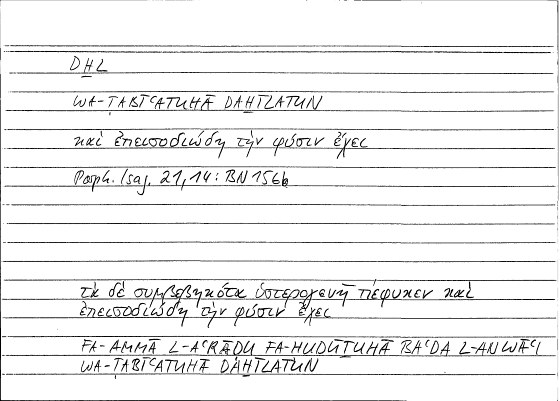 DḪL
WA-ṬABĪʿATUHĀ DAḪĪLATUN
καὶ ἐπεισοδιώδη τὴν φύσιν ἔχει
Porph. Isag. 21,14: BN 156b
τὰ δὲ συμβεβηκότα ὑστερογενῆ πέφυκεν καὶ
ἐπεισοδιώδη τὴν φύσιν ἔχει
FA-AMMĀ L-AʿRĀḌU FA-ḤUDŪṮUHĀ BAʿDA L-ANWĀʿI
WA-ṬABĪʿATUHĀ DAḪĪLATUN